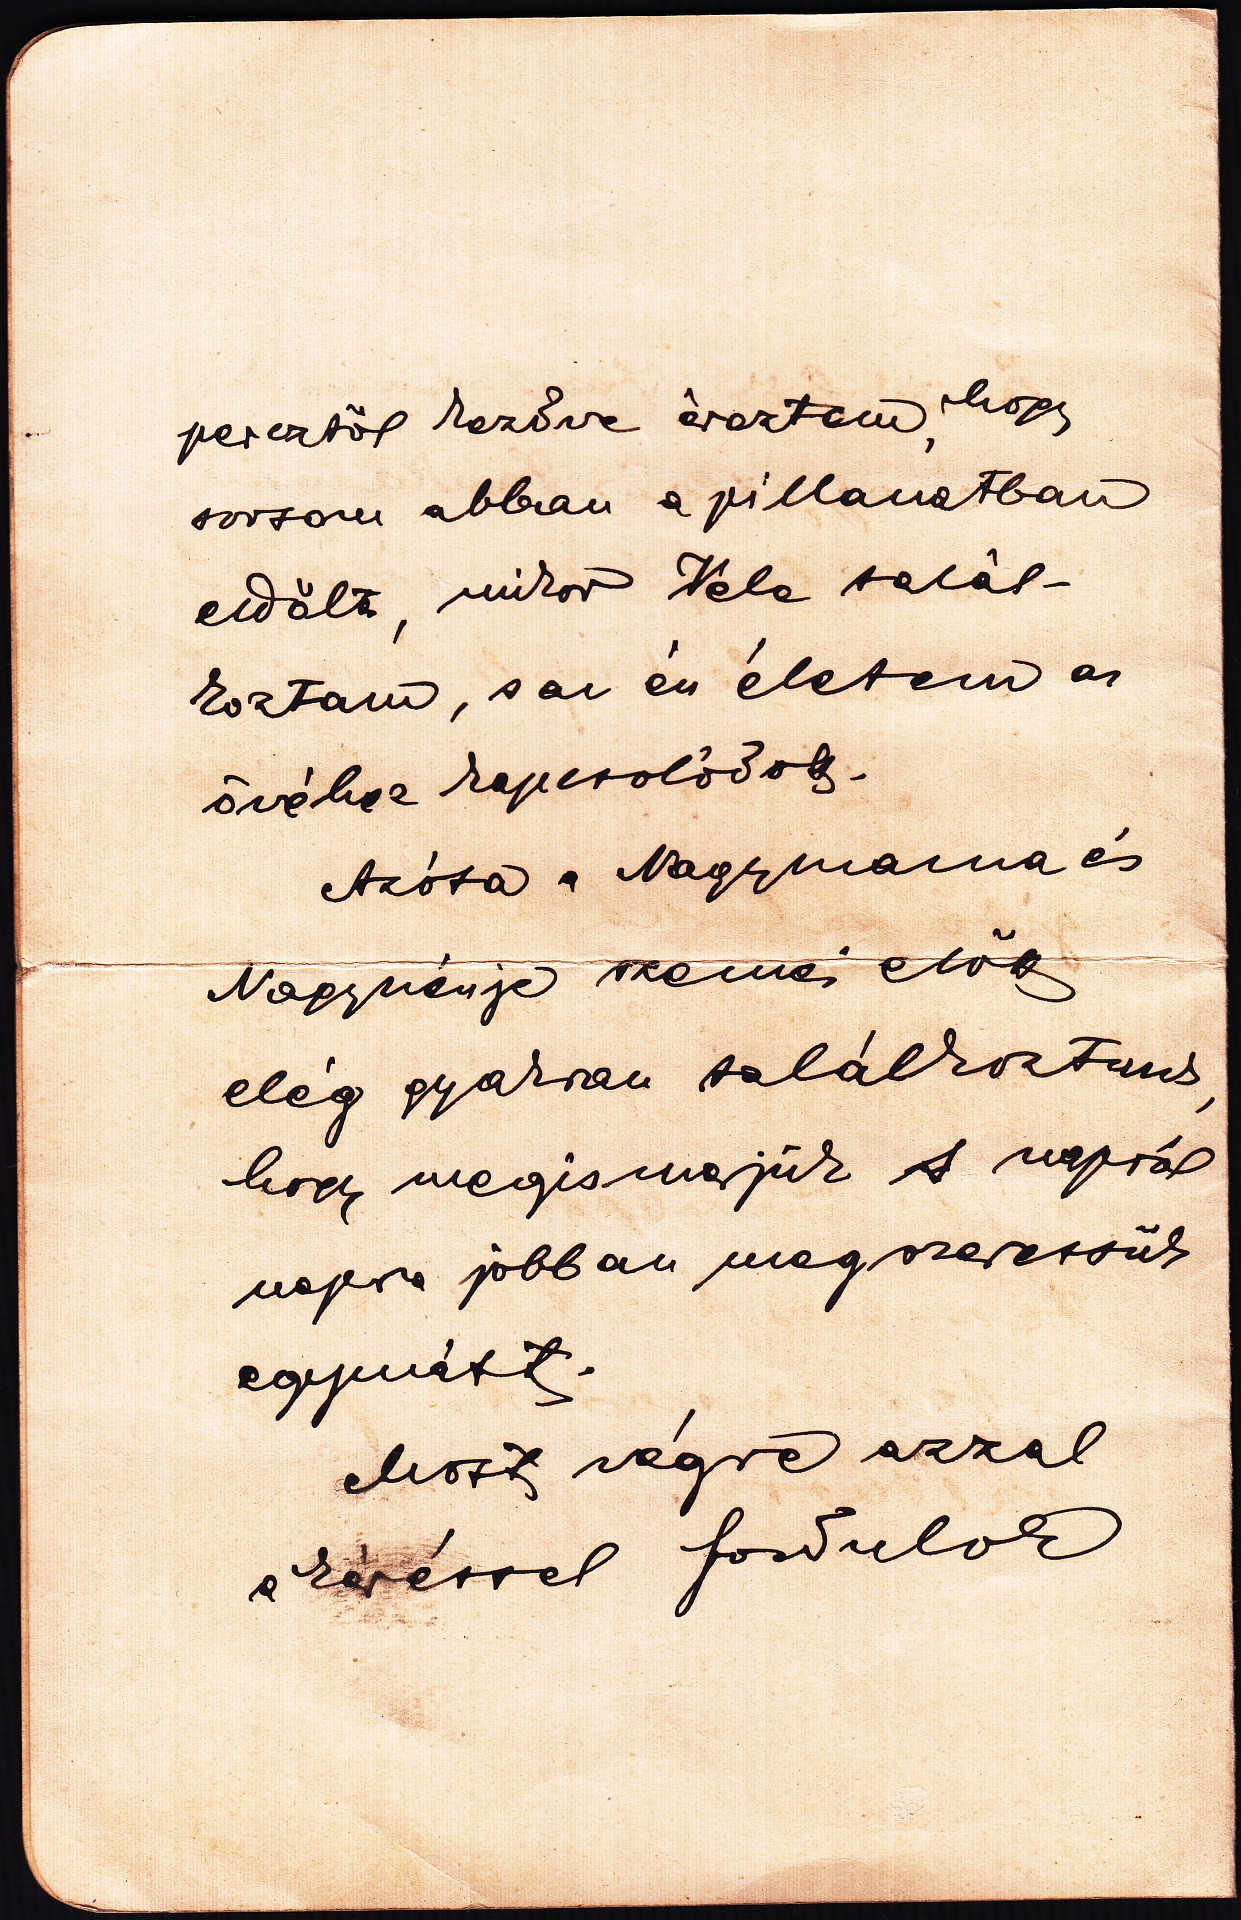 percztől kezdve éreztem, hogy
sorsom abban a pillanatban
eldőlt, mikor Vele talál-
koztam, s az én életem az
övéhez kapcsolódott.
Azóta a Nagymama és
Nagynénje szemei előtt
elég gyakran találkoztunk,
hogy megismerjük s napról
napra jobban megszeressük
egymást.
Most végre azzal
a kéréssel fordulok